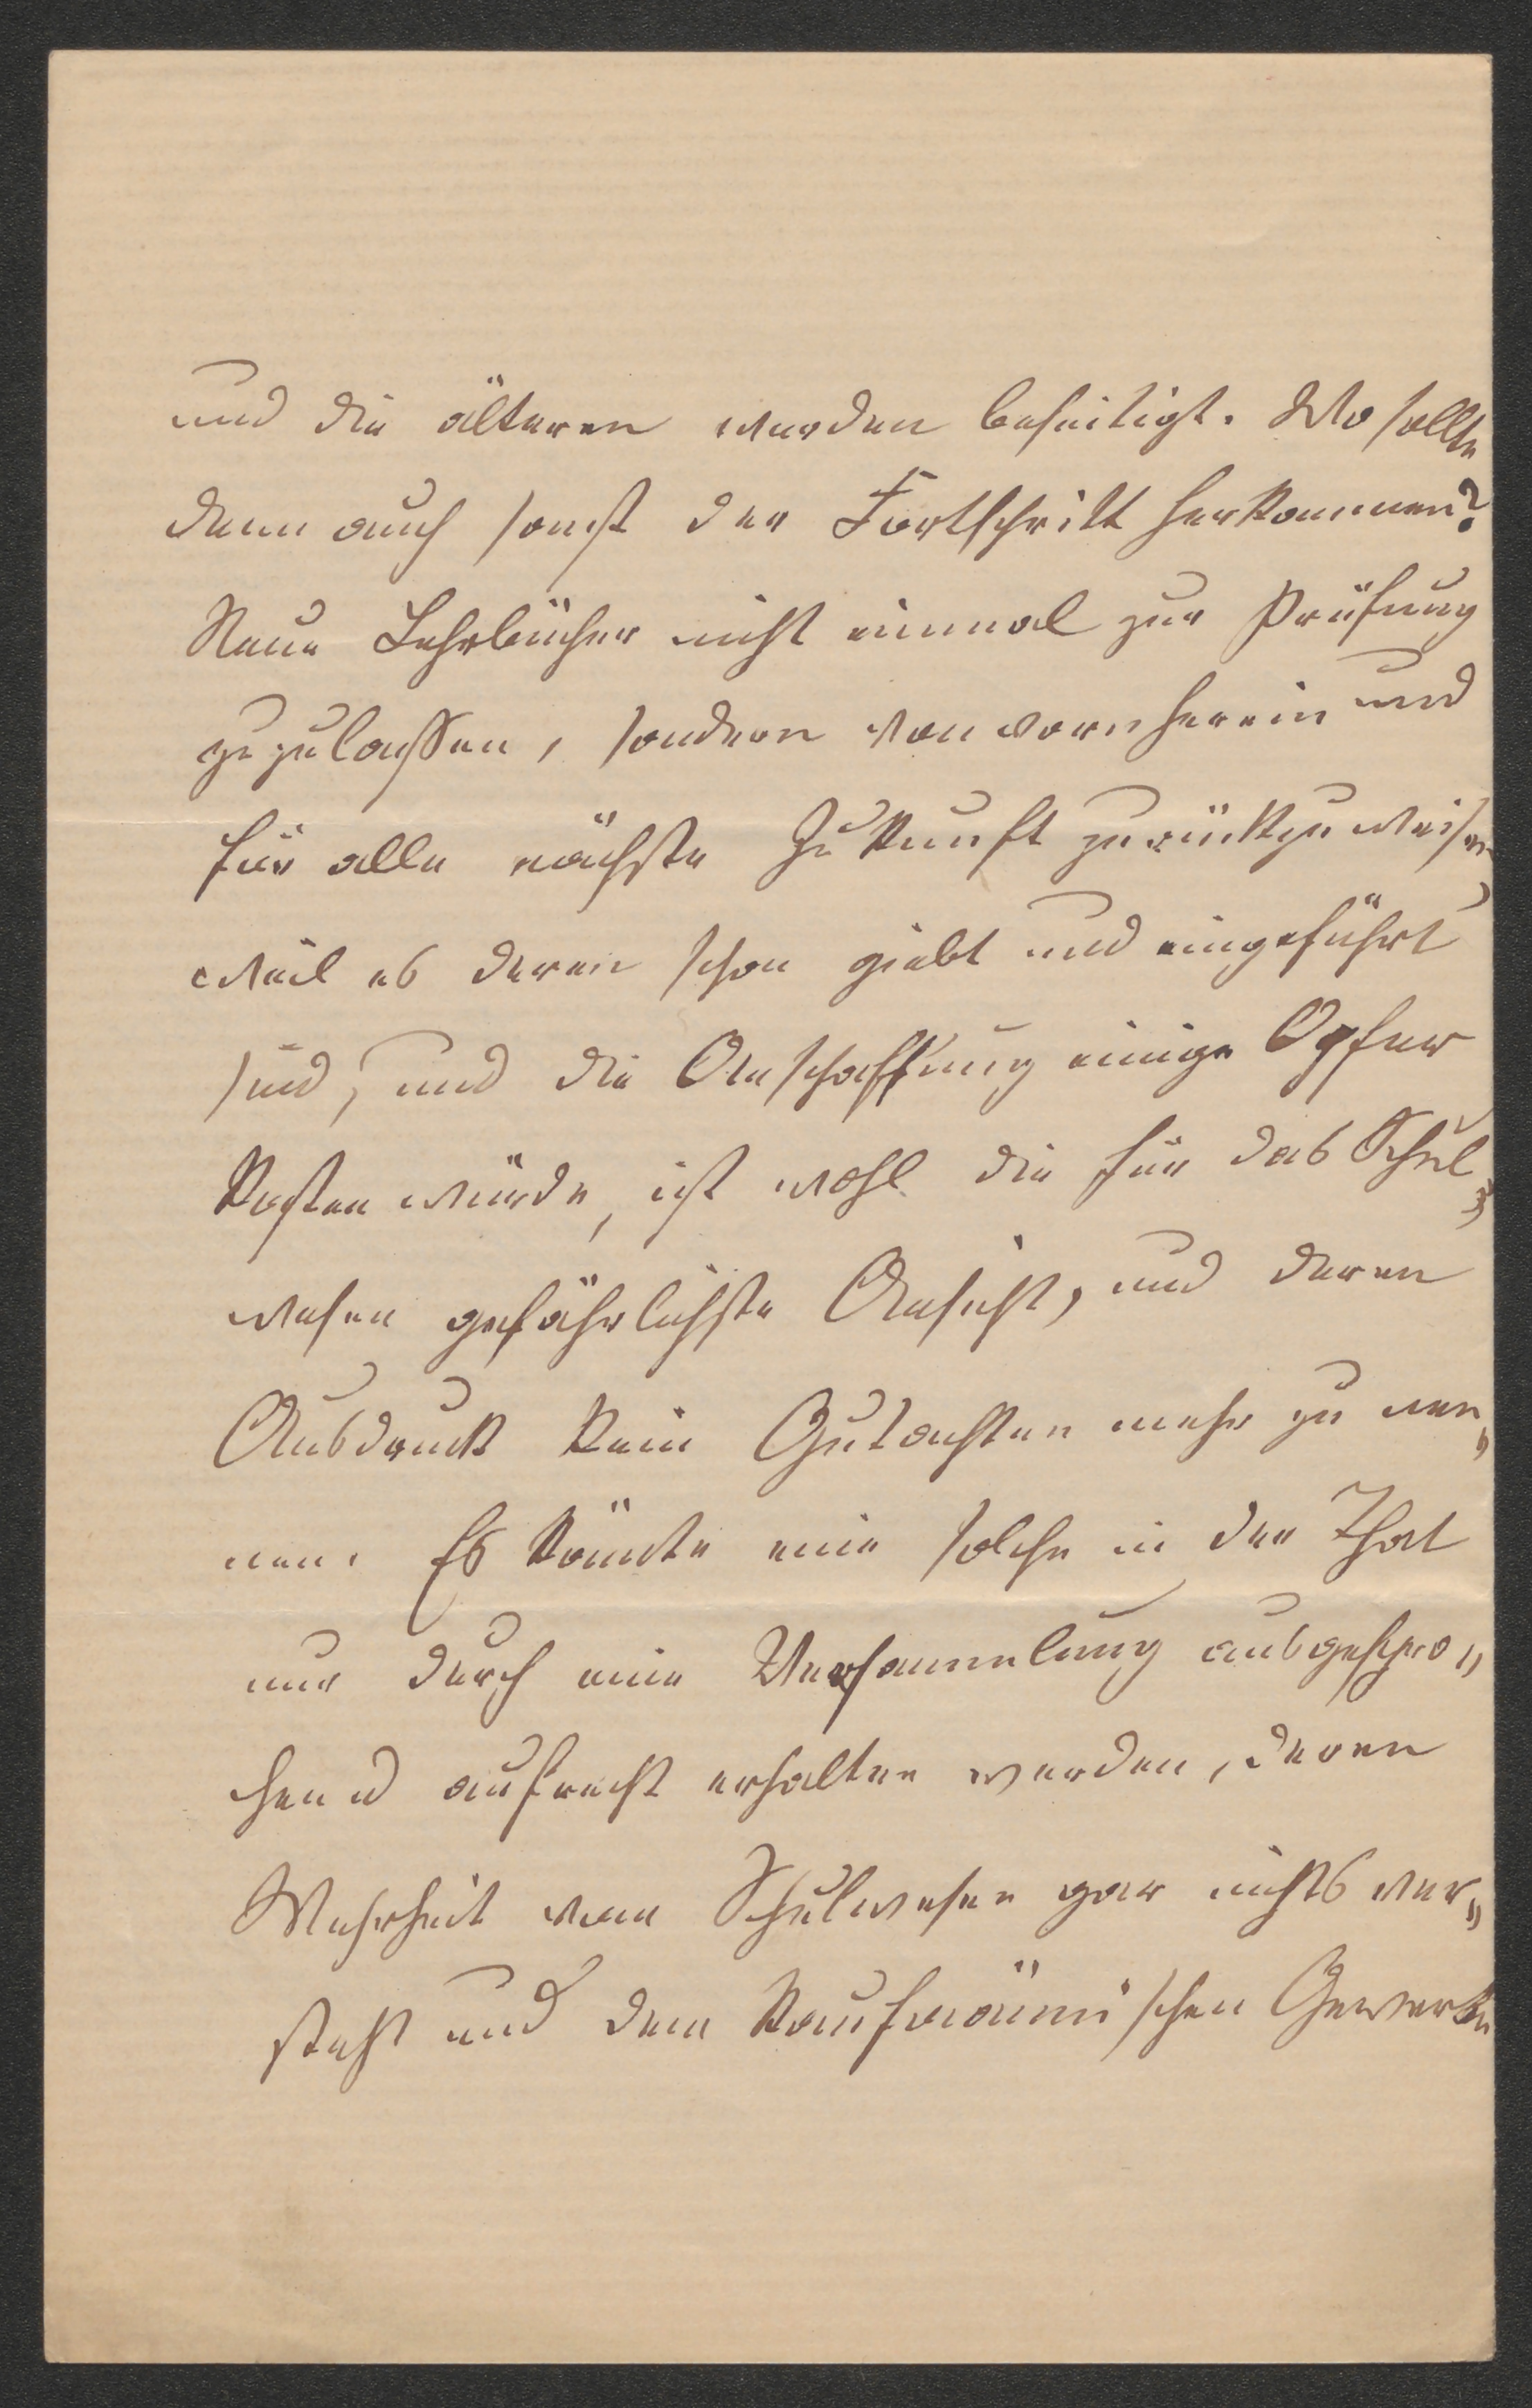 und die älteren werden beseitigt. Wo sollte
denn auch sonst der Fortschritt herkommen?
Neue Lehrbücher nicht einmal zur Prüfung
zuzulassen, sondern von vornherein und
für alle nächste Zukunft zurückzuweisen
weil es deren schon giebt und eingeführt
sind, und die Anschaffung einige Opfer
kosten würde, ist wohl die für das Schul„
wesen gefährlichste Ansicht, und deren
Ausdruck kein Gutachten mehr zu nen„
nen. Es könnte eine solche in der That
nur durch eine Versammlung ausgespro„
chen u aufrecht erhalten werden, deren
Mehrheit vom Schulwesen gar nichts ver„
steht und dem kaufmännischen Gewerbe